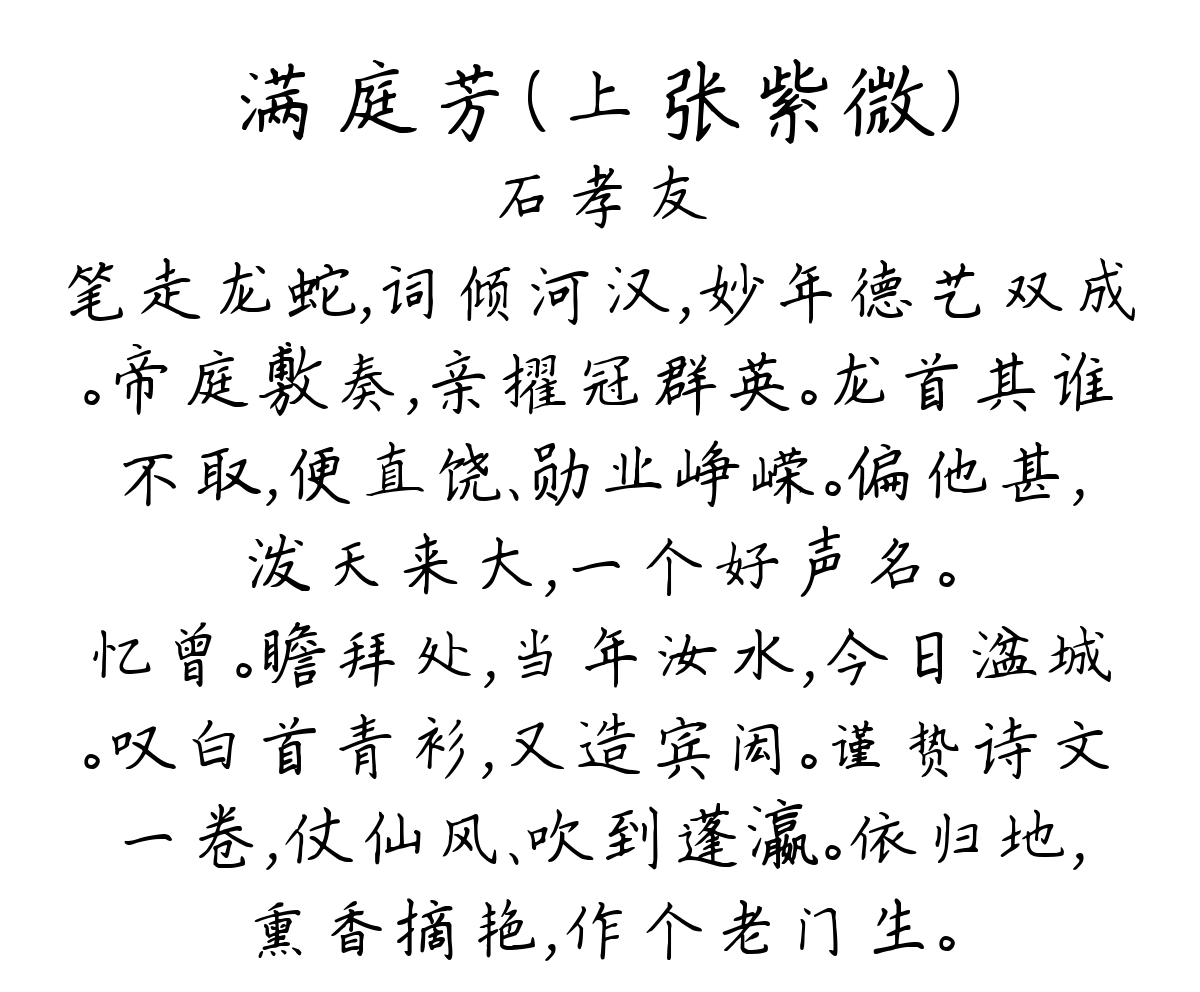 满庭芳(上张紫微)
石孝友
笔走龙蛇,词倾河汉,妙年德艺双成
。帝庭敷奏,亲擢冠群英。龙首其谁
不取,便直饶、勋业峥嵘。偏他甚,
泼天来大,一个好声名。
忆曾。瞻拜处,当年汝水,今日湓城
。叹白首青衫,又造宾闳。谨贽诗文
一卷,仗仙风、吹到蓬瀛。依归地,
熏香摘艳,作个老门生。